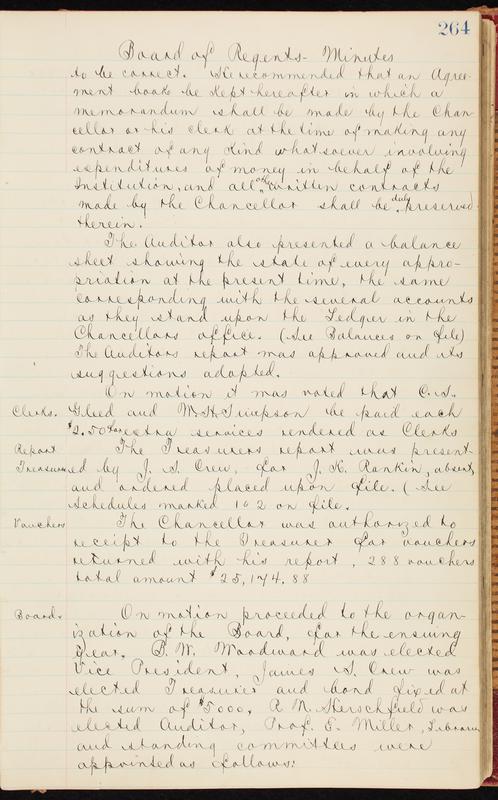 264
Board of Regents - Minutes
to be correct. He recommended that an Agree-
ment book be kept hereafter in which a
memorandum shall be made by the Chan-
cellor or his clerk at the time of making any
contract of any kind whatsoever involving
expenditures of money in behalf of the
Institution, and all other written contracts
made by the Chancellor shall be duly preserved
therein.
The Auditor also presented a balance
sheet showing the state of every appro-
priation at the present time, the same
corresponding with the several accounts
as they stand upon the Ledger in the
Chancellors office. (See Balances on file)
The Auditors report was approved and its
suggestions adopted.
On motion it was voted that C. S.
Clerks. Gleed and W. H. Simpson be paid each
$2.50 for extra services rendered as Clerks
Report The Treasurers report was present-
Treasurer ed by J. S. Crew, for J. K. Rankin, absent,
and ordered placed upon file. (See
Schedules marked 1 & 2 on file.
Vouchers The Chancellor was authorized to
receipt to the Treasurer for vouchers
returned with his report, 288 vouchers
total amount $25,174.88
Board. On motion proceeded to the organ-
ization of the Board, for the ensuing
year. B. W. Woodward was elected
Vice President, James S. Crew was
elected Treasurer and bond fixed at
the sum of $5000, R. M. Herschfield was
elected Auditor, Prof. E. Miller, Librarian
and standing committees were
appointed as follows: